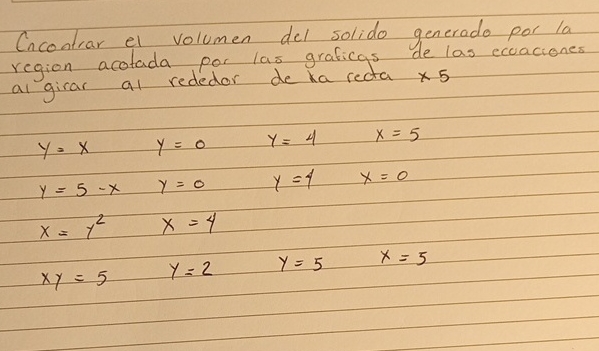 Encontrar el volumen del solido generado por la
region acotada por las graficas de las ecuaciones
al girar al rededor de la recta x 5
y = x y = 0 y = 4 x = 5
y = 5 - x y = 0 y = 4 x = 0
x = y² x = 4
xy = 5 y = 2 y = 5 x = 5